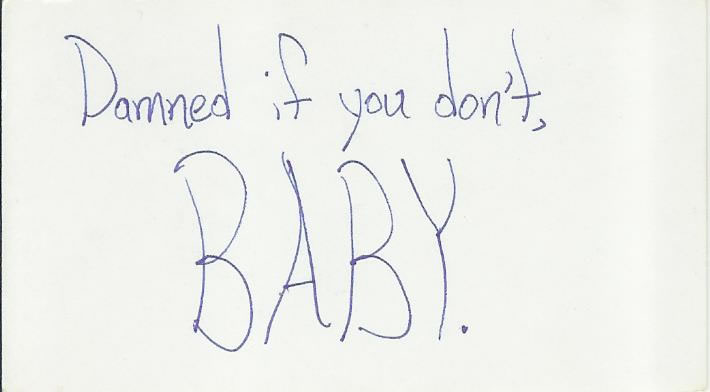 Damned if you don't,
BABY.